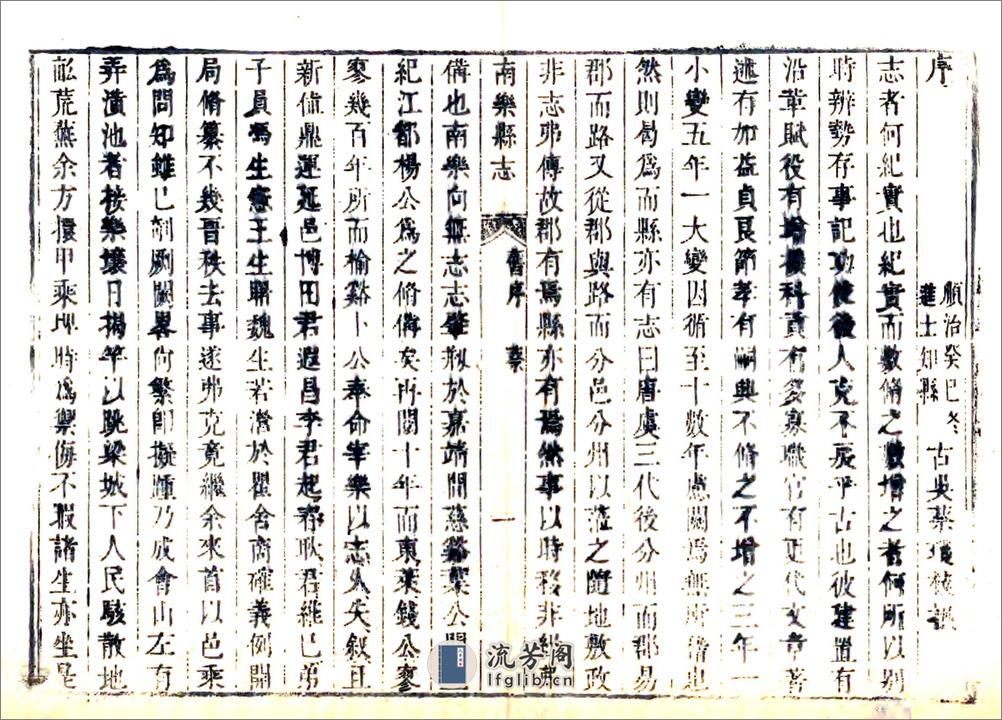 序
順治癸巳冬
進士知縣
古吳蔡瓊枝譔
志者何紀實也紀實而數脩之數增之者何所以别
時辨勢存事記功使後人克不戾乎古也彼建置有
沿革賦役有增損科貢有多寡職官有更代文章著
述有加益貞良節孝有嗣興不脩之不增之三年一
小變五年一大變因循至十數年慮闕焉無所稽也
然則曷爲而縣亦有志曰唐虞三代後分州而郡易
郡而路又從郡與路而分邑分州以蒞之隨地敷政
非志弗傳故郡有焉縣亦有焉然事以時移非紀弗
南樂縣志
舊序 蔡
一
備也南樂向無志志肇刱於嘉靖間慈谿葉公閱二
紀江都楊公爲之脩備矣再閱十年而東萊錢公寥
寥幾百年所而榆谿卜公奉命宰樂以志久失敘且
新値鼎運延邑博田君遐昌李君起春耿君繼已弟
子員馮生憲王生聘魏生若澹於瞿舍商確義例開
局脩纂不幾晉秩去事遂弗克竟繼余來首以邑乘
爲問知雖已剞劂闕畧尚繁卽擬踵乃成會山左有
弄潢池者接樂壤日揭竿以跳梁城下人民駭散地
畝荒蕪余方擐甲乘埤時爲禦侮不暇諸生亦坐是
流芳阁
lfglib.cn